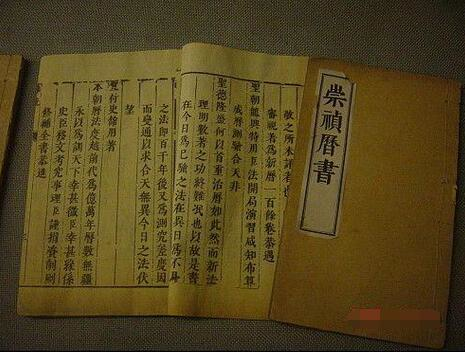 崇禎曆書
敬之所未詳者也
審視著為新曆一百餘卷恭遇
聖朝龍興特用臣法開局演習咸知布算
成曆測驗合天非
聖德隆盛何以首重治曆如此然而新法
理明數著之功終難泯也以故是書
在今日為已驗之法在異日為不刊
之法即百千年後又為測究差度因
而變通以求合天無異今日之法伏
望
聖有史館用著
本朝曆法度越前代為億萬年曆數無疆
永以為訓天下幸甚微臣幸甚緣係
史臣移文考究事理臣謹捐資制刷
修補全書恭進